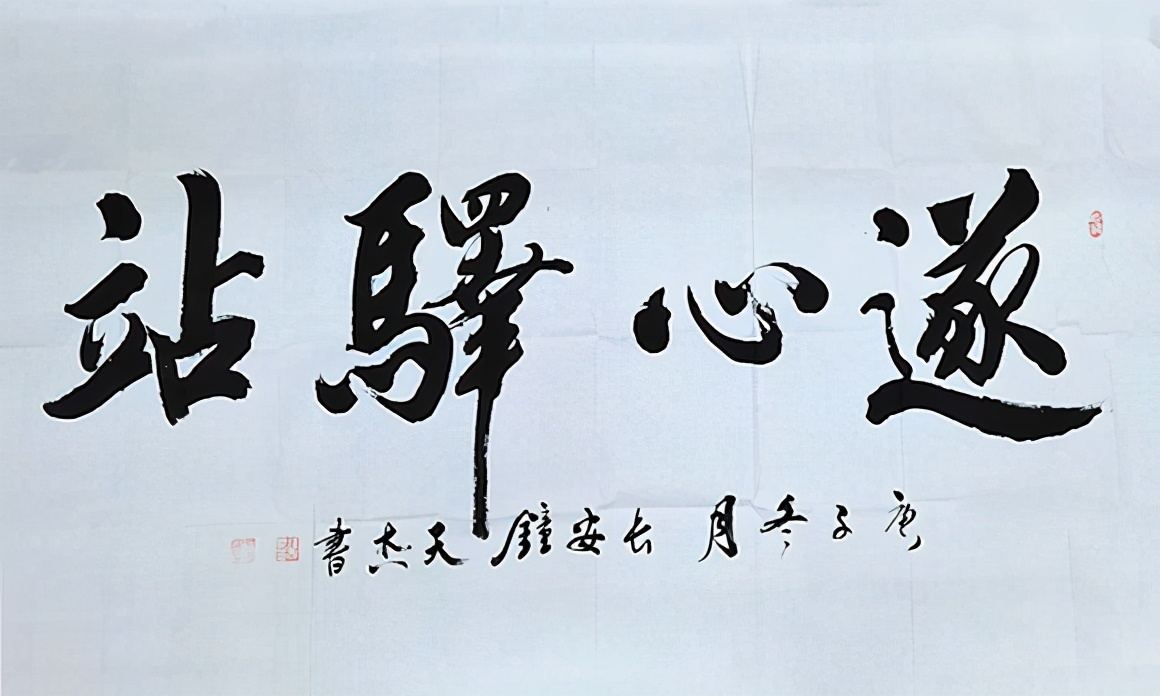 遂心驛站
庚子冬月长安鐘天杰書